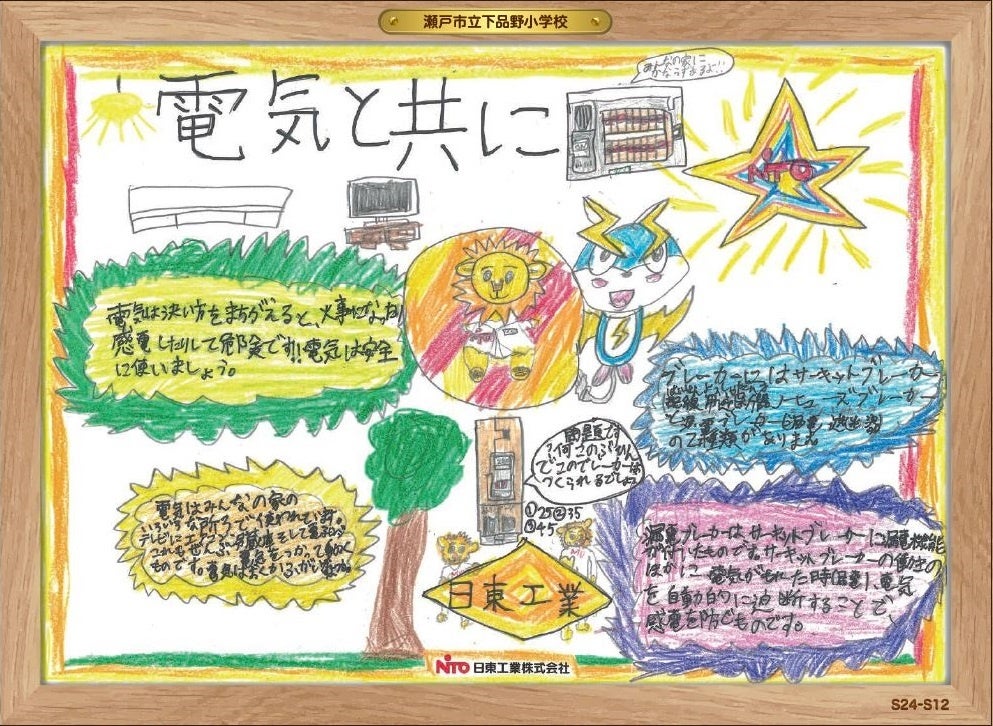 瀬戸市立下品野小学校
電気と共に
みんなの家に
かならずあるよ!!
NITO
電気は決い方をまちがえると、火事になったり
感電したりして危険です!!電気は安全
に使いましょう。
ブレーカーにはサーキットブレーカー
ヒューズブレーカー
と漏電ブレーカー
の2種類があります
問題です
?何このぶひん
でこのブレーカーは
つくられるでしょう
①25②35
③45
電気はみんなの家の
いろいろな所で使われています。
テレビにエアコン
これもぜんぶ電気をつかって動く
ものです。
漏電ブレーカーは、サーキットブレーカーに漏電機能
が付いたものです。サーキットブレーカーの動作の
ほかに電気がもれた時
を自動的に遮断することで、
感電を防ぐものです。
日東工業
NITO 日東工業株式会社
S24-S12